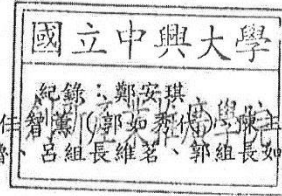 國立中興大學
紀錄：鄭安琪
任智薰（郭如秀代）、陳主
、呂組長維茗、郭組長如